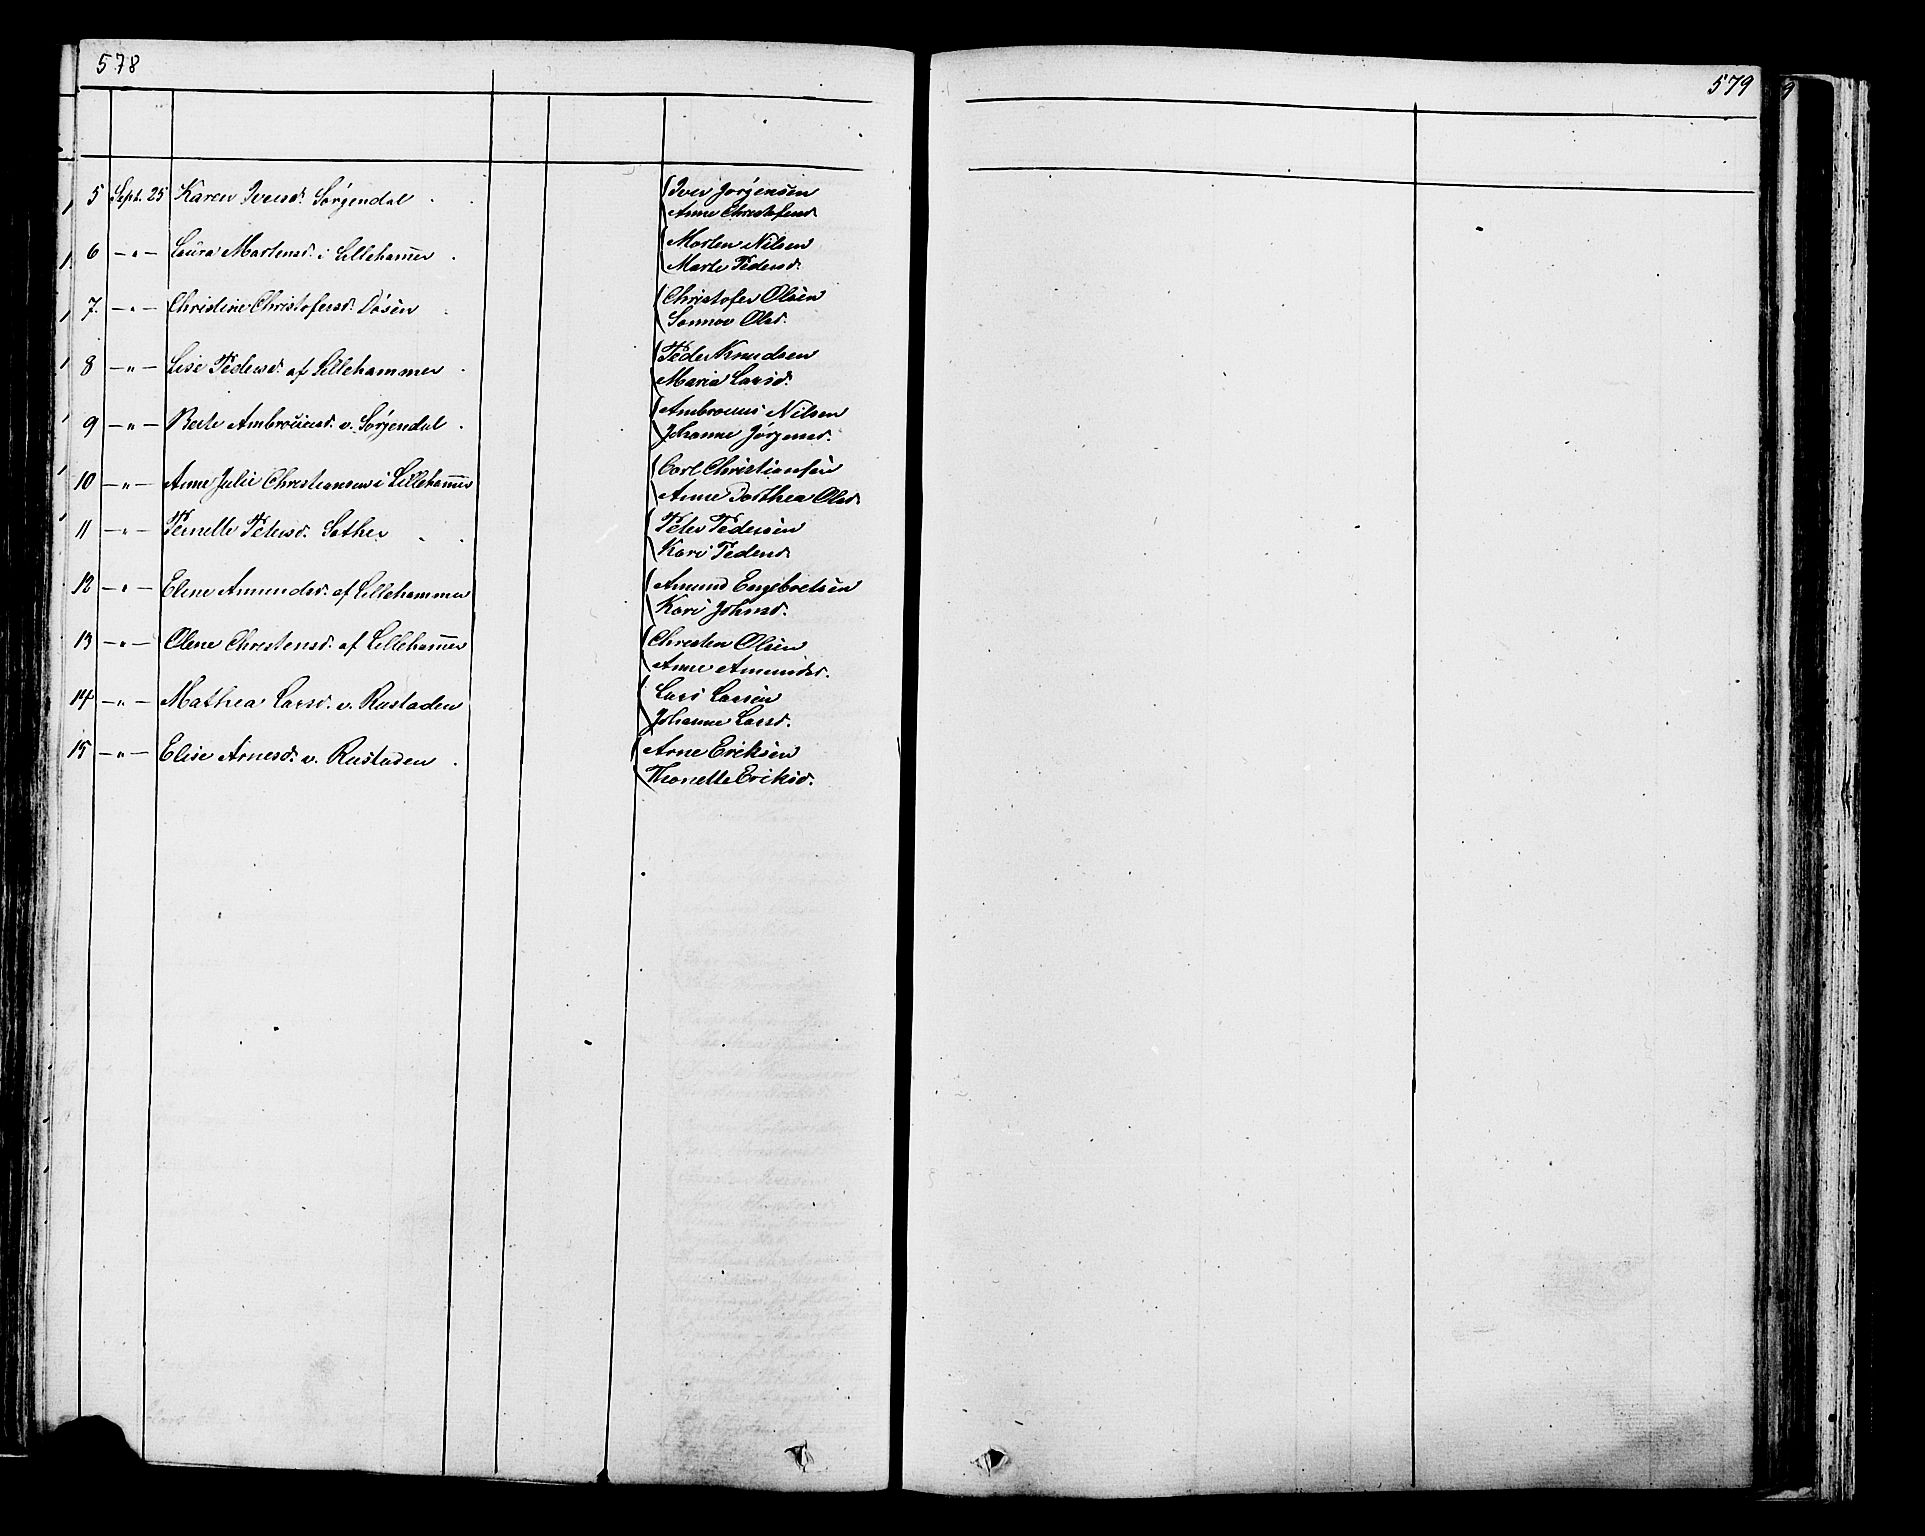 578
579
5 Sept. 25 Karen Iversd. Sørgendal
(Iver Jørgensen
Anne Christofersd.
6 — " — Laura Mortensd. i Lillehamer
(Morten Nilsen
Marte Pedersd.
7. — " — Christine Christofersd. Døsen
(Christofer Olsen
Sonnov Olsd.
8 — " — Lise Pedersd. af Lillehammer
(Peder Knudsen
Maria Larsd.
9 — " — Berte Ambrosiusd. v. Sørgendal
(Ambrosius Nilsen
Johanne Jørgensd.
10 — " — Anne Julie Christiansen i Lillehamer
(Carl Christiansen
Anne Dorthea Olsd.
11 — " — Pernelle Petersd. Sother
(Peter Pedersen
Kari Pedersd.
12 — " — Eline Amundsd. af Lillehammer
(Amund Engebretsen
Kari Johnsd.
13 — " — Olene Christensd. af Lillehamer
(Christen Olsen
Anne Amundsd.
14 — " — Mathea Larsd. v. Rustaden
(Lars Larsen
Johanne Larsd.
15 — " — Elise Arnesd. v. Rustaden
(Arne Eriksen
Thonette Eriksd.